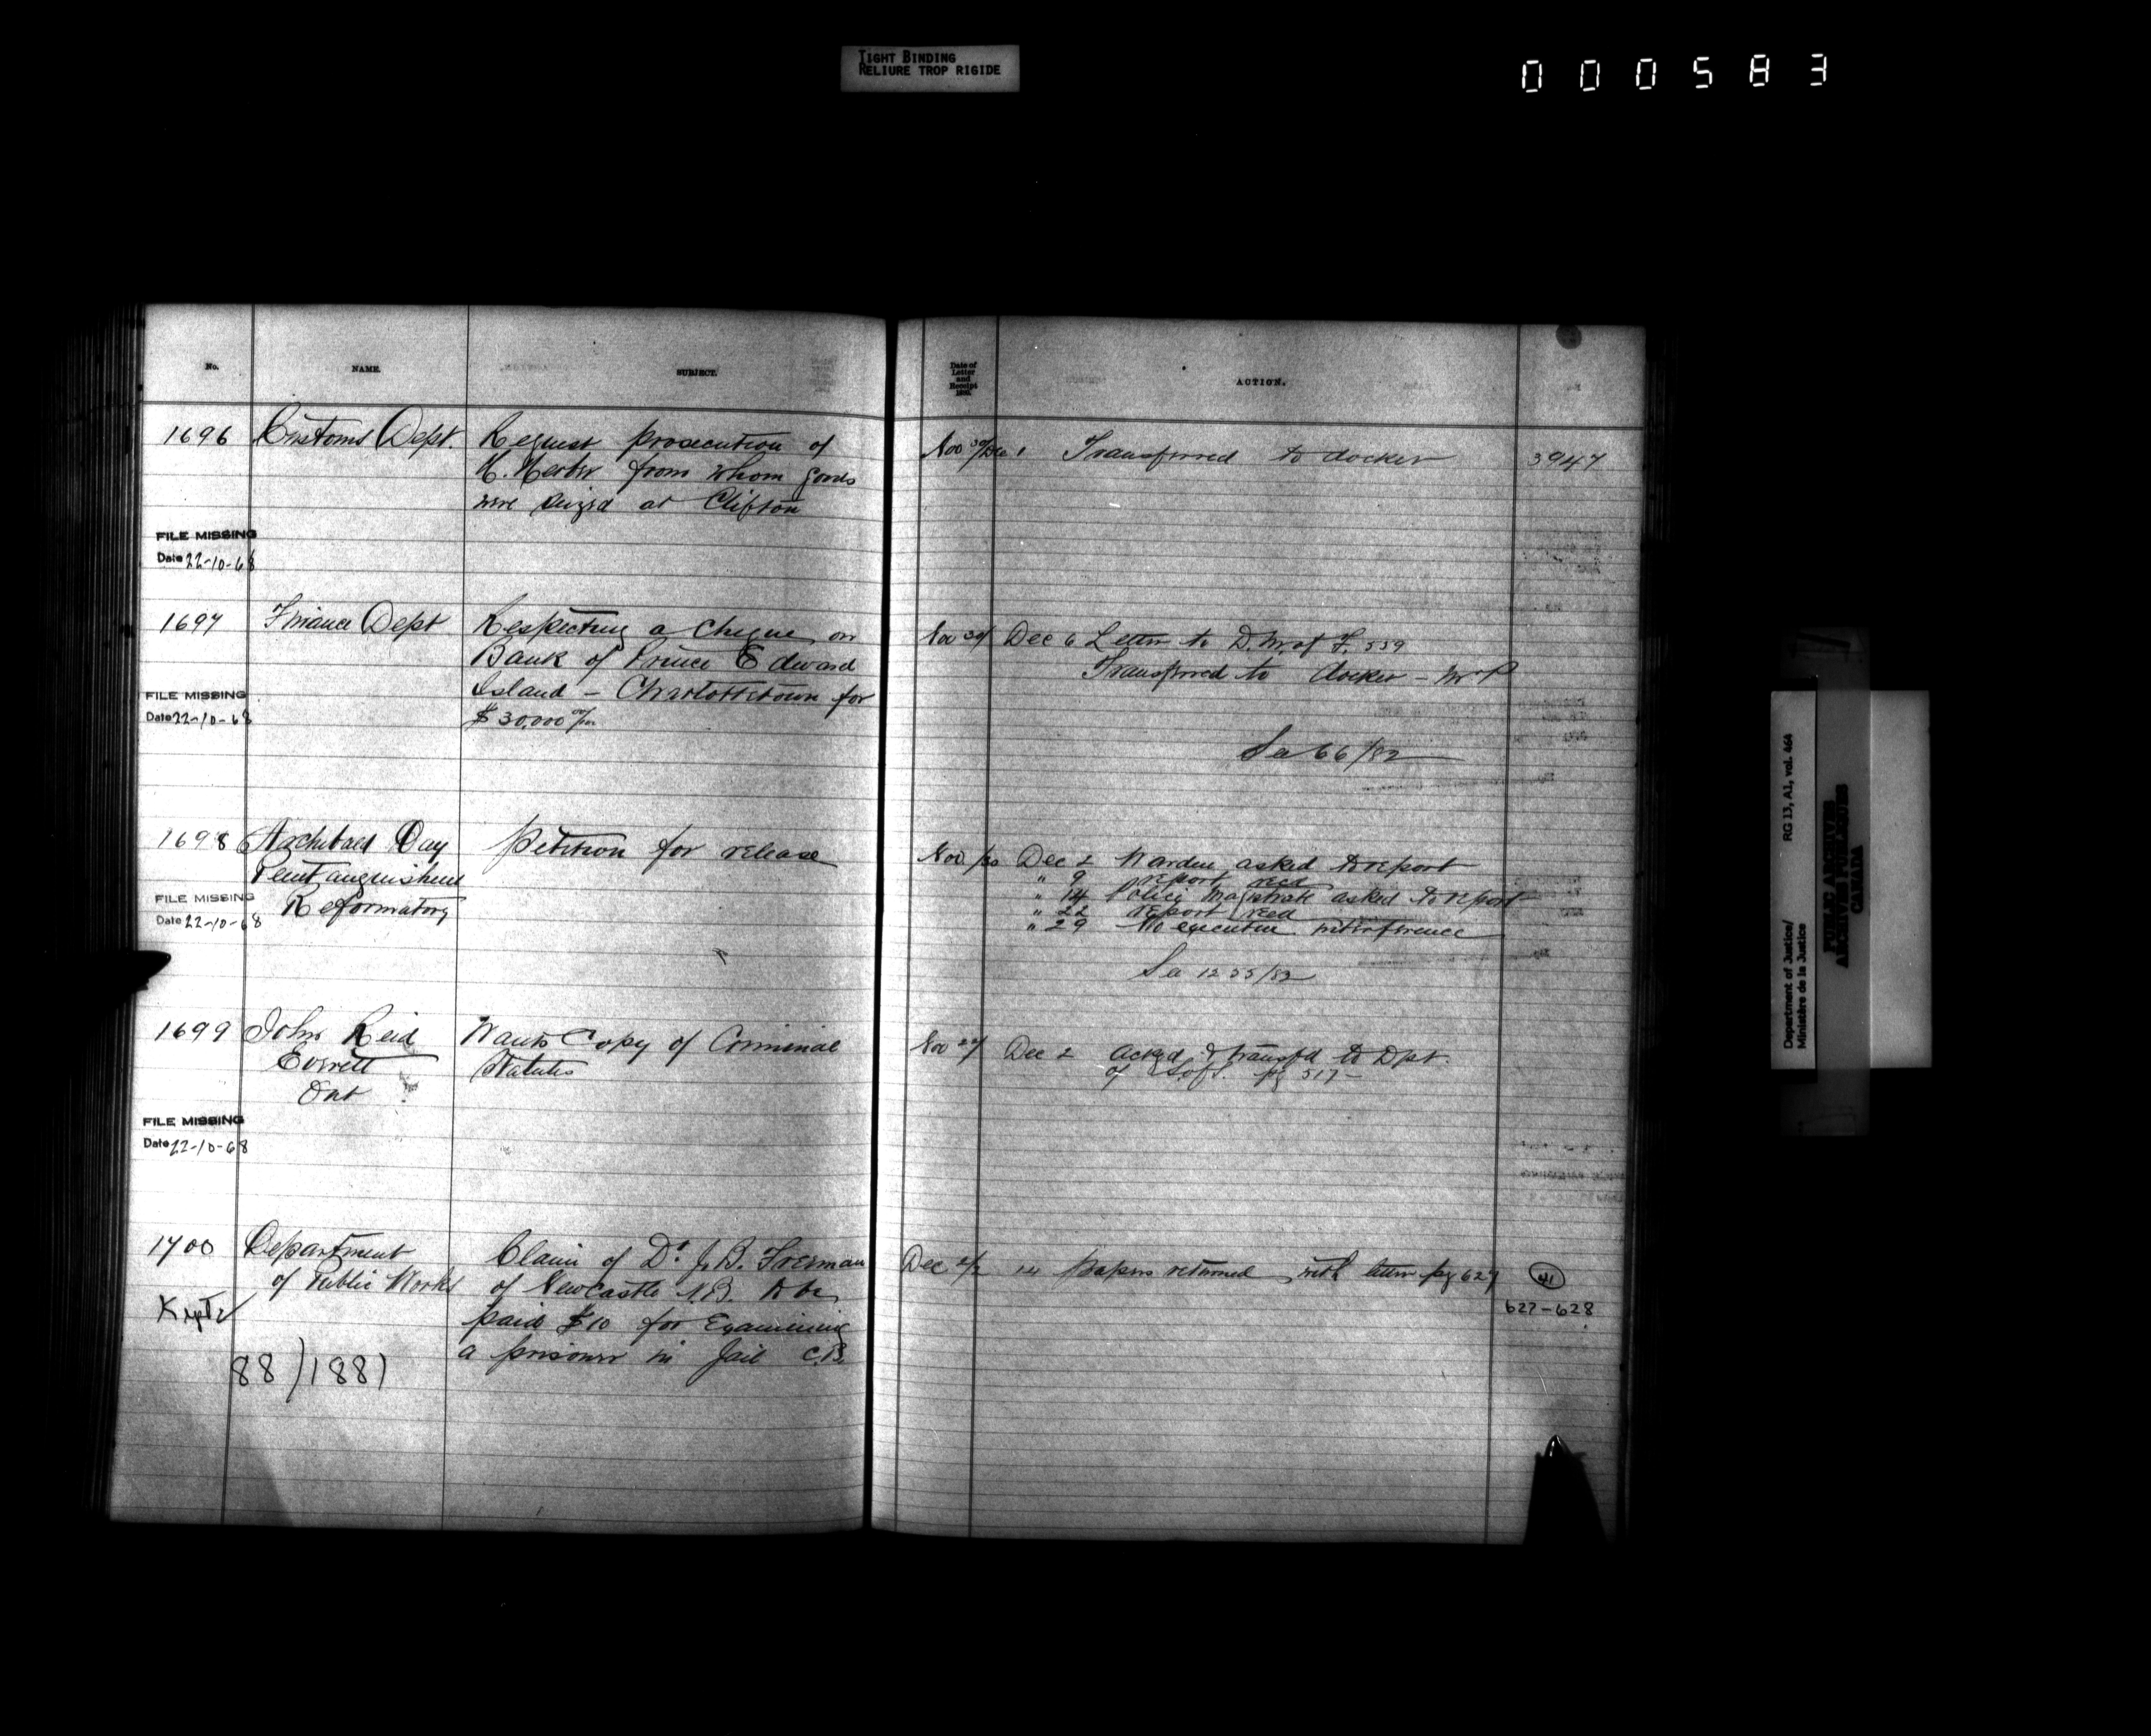 TIGHT BINDING
RELIURE TROP RIGIDE
000583
No. NAME. SUBJECT.
1696 Customs Dept. Request prosecution of
from whom goods
were seized at Clifton
FILE MISSING
Date 22-10-68
1697 Finance Dept Respecting a Cheque on
Bank of Prince Edward
Island - Charlottetown for
$30,000 00/100
FILE MISSING
Date 22-10-68
1698 Archibald Day Petition for release
Penetanguishene
Reformatory
FILE MISSING
Date 22-10-68
1699 John Reid Wants Copy of Criminal
Everett Statutes
Ont
FILE MISSING
Date 22-10-68
1700 Department Claim of Dr J. B. Freeman
of Public Works of Newcastle N.B. to be
paid $10 for Examining
a prisoner in Jail C.B.
88)1881
Date of
Letter
and
Receipt
ACTION.
Nov 30/Dec 1 Transferred to docket 3947
Nov 30/ Dec 6 Letter to D. M. of F. 559
Transferred to docket -
See 66/82
Nov /30 Dec 2 Warden asked to report
" 9 report recd
" 14 Police Magistrate asked to report
" 22 report recd
" 29 No executive interference
See 1255/82
Nov 29/ Dec 2 Ackgd & transfd to Dpt.
of S. of S. pg 517-
Dec 2/2 14 Papers returned with letter pg 627 41
627-628
Department of Justice/ RG 13, A1, vol. 464
Ministère de la Justice
PUBLIC ARCHIVES
ARCHIVES PUBLIQUES
CANADA